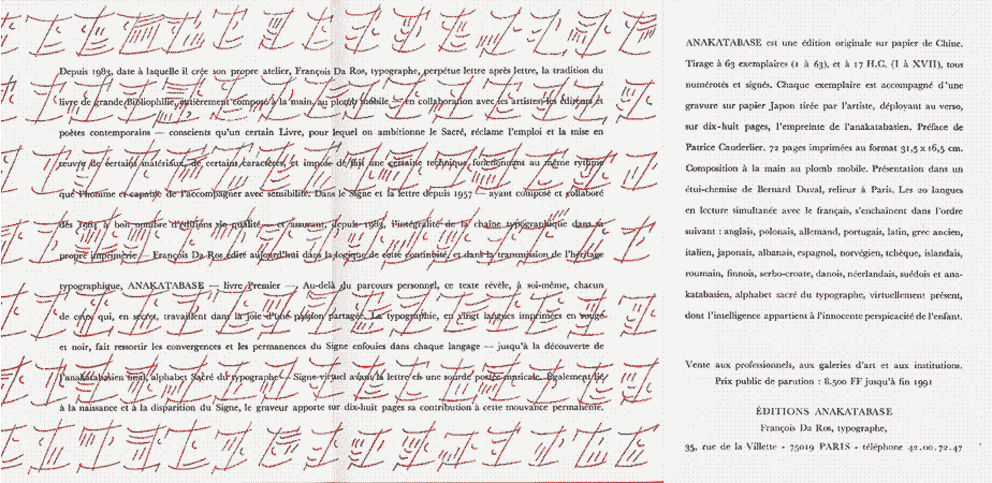 Depuis 1983, date à laquelle il crée son propre atelier, François Da Ros, typographe, perpétue lettre après lettre, la tradition du
livre de grande Bibliophilie, entièrement composé à la main, au plomb mobile — en collaboration avec les artistes, les éditeurs et
poètes contemporains — conscients qu'un certain Livre, pour lequel on ambitionne le Sacré, réclame l'emploi et la mise en
œuvre de certains matériaux, de certains caractères, et impose de fait une certaine technique, fonctionnant au même rythme
que l'homme et capable de l'accompagner avec sensibilité. Dans le Signe et la lettre depuis 1957 — ayant composé et collaboré
dès 1961 à bon nombre d'éditions de qualité — et assurant, depuis 1983, l'intégralité de la chaîne typographique dans sa
propre imprimerie — François Da Ros édite aujourd'hui dans la logique de cette continuité, et dans la transmission de l'héritage
typographique, ANAKATABASE — livre Premier —. Au-delà du parcours personnel, ce texte révèle, à soi-même, chacun
de ceux qui, en secret, travaillent dans la joie d'une passion partagée. La typographie, en vingt langues imprimées en rouge
et noir, fait ressortir les convergences et les permanences du Signe enfouies dans chaque langage — jusqu'à la découverte de
l'anakatabasien final, alphabet Sacré du typographe — Signe virtuel avant la lettre en une sourde portée musicale. Également lié
à la naissance et à la disparition du Signe, le graveur apporte sur dix-huit pages sa contribution à cette mouvance permanente.
ANAKATABASE est une édition originale sur papier de Chine.
Tirage à 63 exemplaires (1 à 63), et à 17 H.C. (I à XVII), tous
numérotés et signés. Chaque exemplaire est accompagné d'une
gravure sur papier Japon tirée par l'artiste, déployant au verso,
sur dix-huit pages, l'empreinte de l'anakatabasien. Préface de
Patrice Cauderlier. 72 pages imprimées au format 31,5 x 16,5 cm.
Composition à la main au plomb mobile. Présentation dans un
étui-chemise de Bernard Duval, relieur à Paris. Les 20 langues
en lecture simultanée avec le français, s'enchaînent dans l'ordre
suivant : anglais, polonais, allemand, portugais, latin, grec ancien,
italien, japonais, albanais, espagnol, norvégien, tchèque, islandais,
roumain, finnois, serbo-croate, danois, néerlandais, suédois et ana-
katabasien, alphabet sacré du typographe, virtuellement présent,
dont l'intelligence appartient à l'innocente perspicacité de l'enfant.
Vente aux professionnels, aux galeries d'art et aux institutions.
Prix public de parution : 8.500 FF jusqu'à fin 1991
ÉDITIONS ANAKATABASE
François Da Ros, typographe,
35, rue de la Villette - 75019 PARIS - téléphone 42.00.72.47